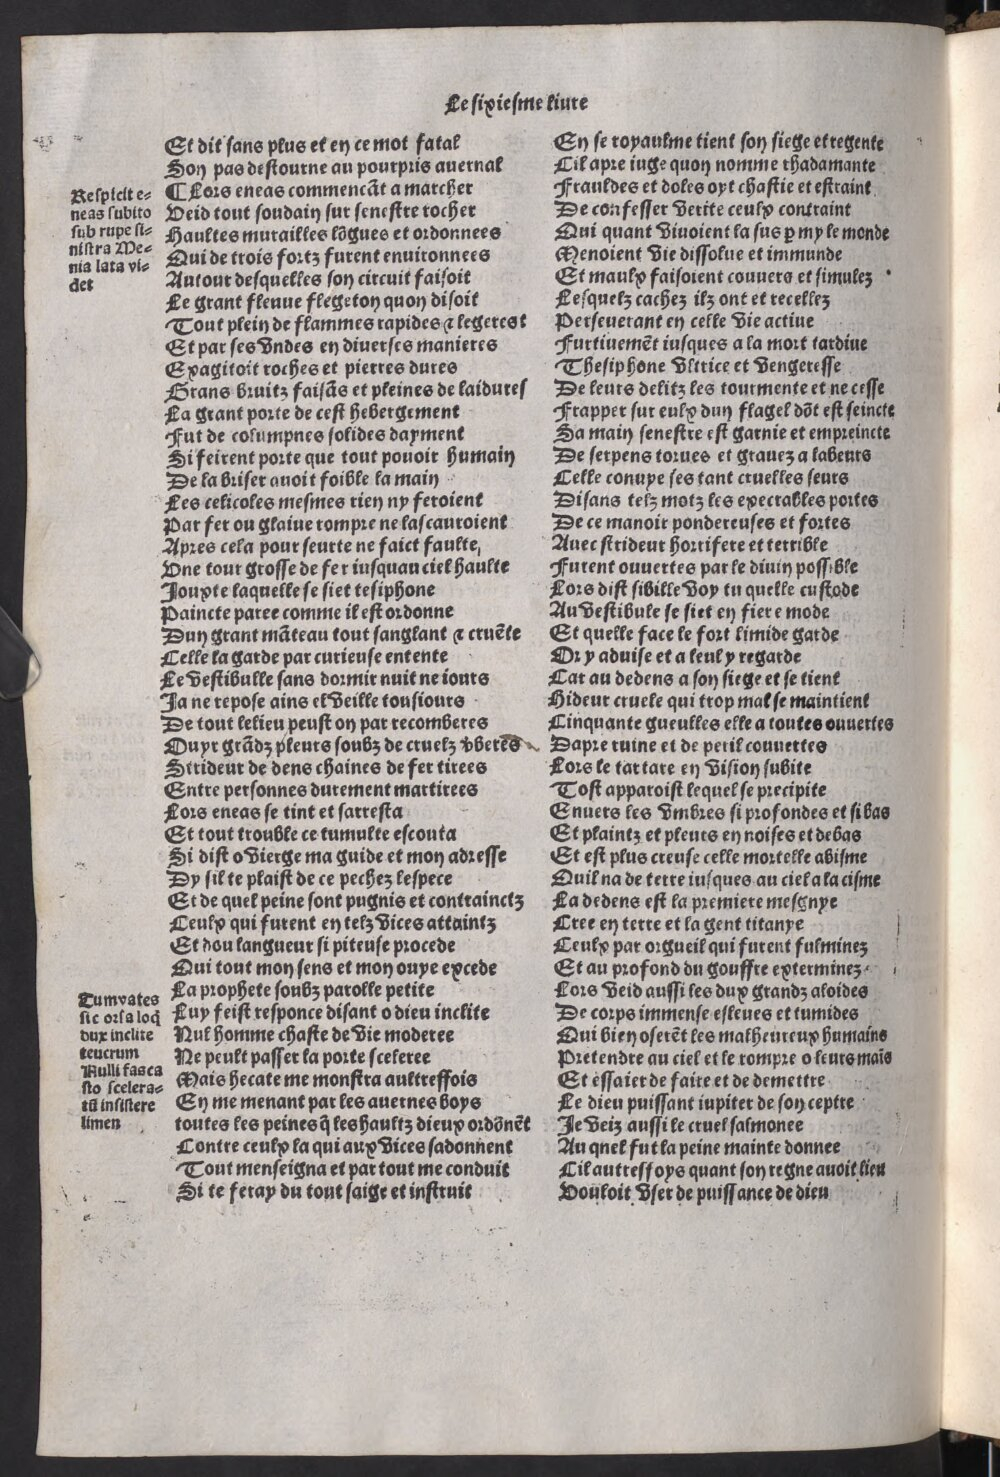 Le sixiesme livre
Et dit sans plus et en ce mot fatal
Son pas destourne au pourpris avernal
¶ Lors eneas commencãt a marcher
Veid tout soudain sur senestre rocher
Haultes murailles lõgues et ordonnees
Qui de trois fortz furent environnees
Autour desquelles son circuit faisoit
Le grant fleuve flegeton quon disoit
Tout plein de flammes rapides ⁊ legeres
Et par ses undes en diverses manieres
Exagitoit roches et pierres dures
Grans bruitz faisãs et pleines de laidures
La grant porte de cest hebergement
Fut de columpnes solides dayment
Si feirent porte que tout povoir humain
De la briser avoit foible la main
Les celicoles mesmes rien ny feroient
Par fer ou glaive rompre ne la scauroient
Apres cela pour seurte ne faict faulte,
Une tour grosse de fer iusquau ciel haulte
Iouxte laquelle se siet tesiphone
Paincte paree comme il est ordonne
Dun grant mãteau tout sanglant ⁊ cruẽte
Celle la garde par curieuse entente
Le vestibulle sans dormir nuit ne iours
Ia ne repose ains elveille tousiours
De tout le lieu peust on par recomberes
Ouyr grãdz pleurs soubz de cruelz vberes
Strideur de dens chaines de fer tirees
Entre personnes durement martirees
Lors eneas se tint et sarresta
Et tout trouble ce tumulte escouta
Si dist o vierge ma guide et mon adresse
Dy sil te plaist de ce pechez lespece
Et de quel peine sont pugnis et contrainctz
Ceulx qui furent en telz vices attaintz
Et dou langueur si piteuse procede
Qui tout mon sens et mon ouye excede
La prophete soubz parolle petite
Luy feist responce disant o dieu inclite
Nul homme chaste de vie moderee
Ne peult passer la porte sceleree
Mais hecate me monstra aultreffois
En me menant par les avernes boys
toutes les peines q̃ les haultz dieux ordõnẽt
Contre ceulx la qui aux vices sadonnent
Tout menseigna et par tout me conduit
Si te feray du tout saige et instruit
Respicit e-
neas subito
sub rupe si-
nistra Me-
nia lata vi-
det
Tum vates
sic orsa loq̃
dux inclite
teucrum
Nulli fas ca
sto scelera-
tũ insistere
limen
En se royaulme tient son siege et regente
Cil apre iuge quon nomme rhadamante
Frauldes et doles oyt chastie et estraint
De confesser verite ceulx contraint
Qui quant vivoient la sus ꝑ my le monde
Menoient vie dissolue et immunde
Et maulx faisoient couvers et simulez
Lesquelz cachez ilz ont et recellez
Perseverant en celle vie active
Furtivemẽt iusques a la mort tardive
Thesiphone ultrice et vengeresse
De leurs delitz les tourmente et ne cesse
Frapper sur eulx dun flagel dõt est seincte
Sa main senestre est garnie et empreincte
De serpens torves et gravez a labeurs
Celle convye ses tant cruelles seurs
Disans telz motz les execrables portes
De ce manoir pondereuses et fortes
Avec strideur horrifere et terrible
Furent ouvertes par le divin possible
Lors dist sibille voy tu quelle custode
Au vestibule se siet en fiere mode
Et quelle face le fort limide garde
Or y advise et a leul y regarde
Car au dedens a son siege et se tient
Hideur cruele qui trop mal se maintient
Cinquante gueulles elle a toutes ouvertes
Dapre ruine et de peril couvertes
Lors le tartare en vision subite
Tost apparoist lequel se precipite
Envers les umbres si profondes et si bas
Et plaintz et pleurs en noises et debas
Et est plus creuse celle mortelle abisme
Quil na de terre iusques au ciel a la cisme
La dedens est la premiere mesgnye
Cree en terre et la gent titanye
Ceulx par orgueil qui furent fulminez
Et au profond du gouffre exterminez
Lors veid aussi les dux grandz aloides
De corps immense esleves et tumides
Qui bien oserẽt les malheureux humains
Pretendre au ciel et le rompre o leurs mais
Et essaier de faire et de demettre
Le dieu puissant iupiter de son ceptre
Ie veiz aussi le cruel salmonee
Au quel fut la peine mainte donnee
Cil autresfoys quant son regne avoit lieu
Vouloit user de puissance de dieu